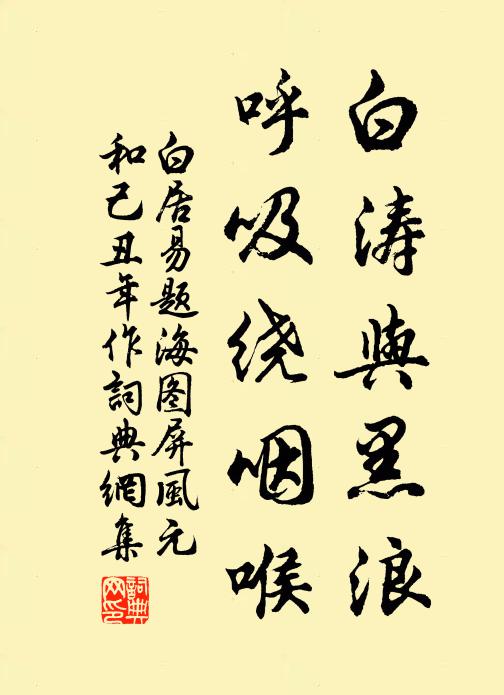 白涛與黑浪
呼吸绕咽喉
白居易题海图屏風元
和己丑年作詞典網集
詞典网印